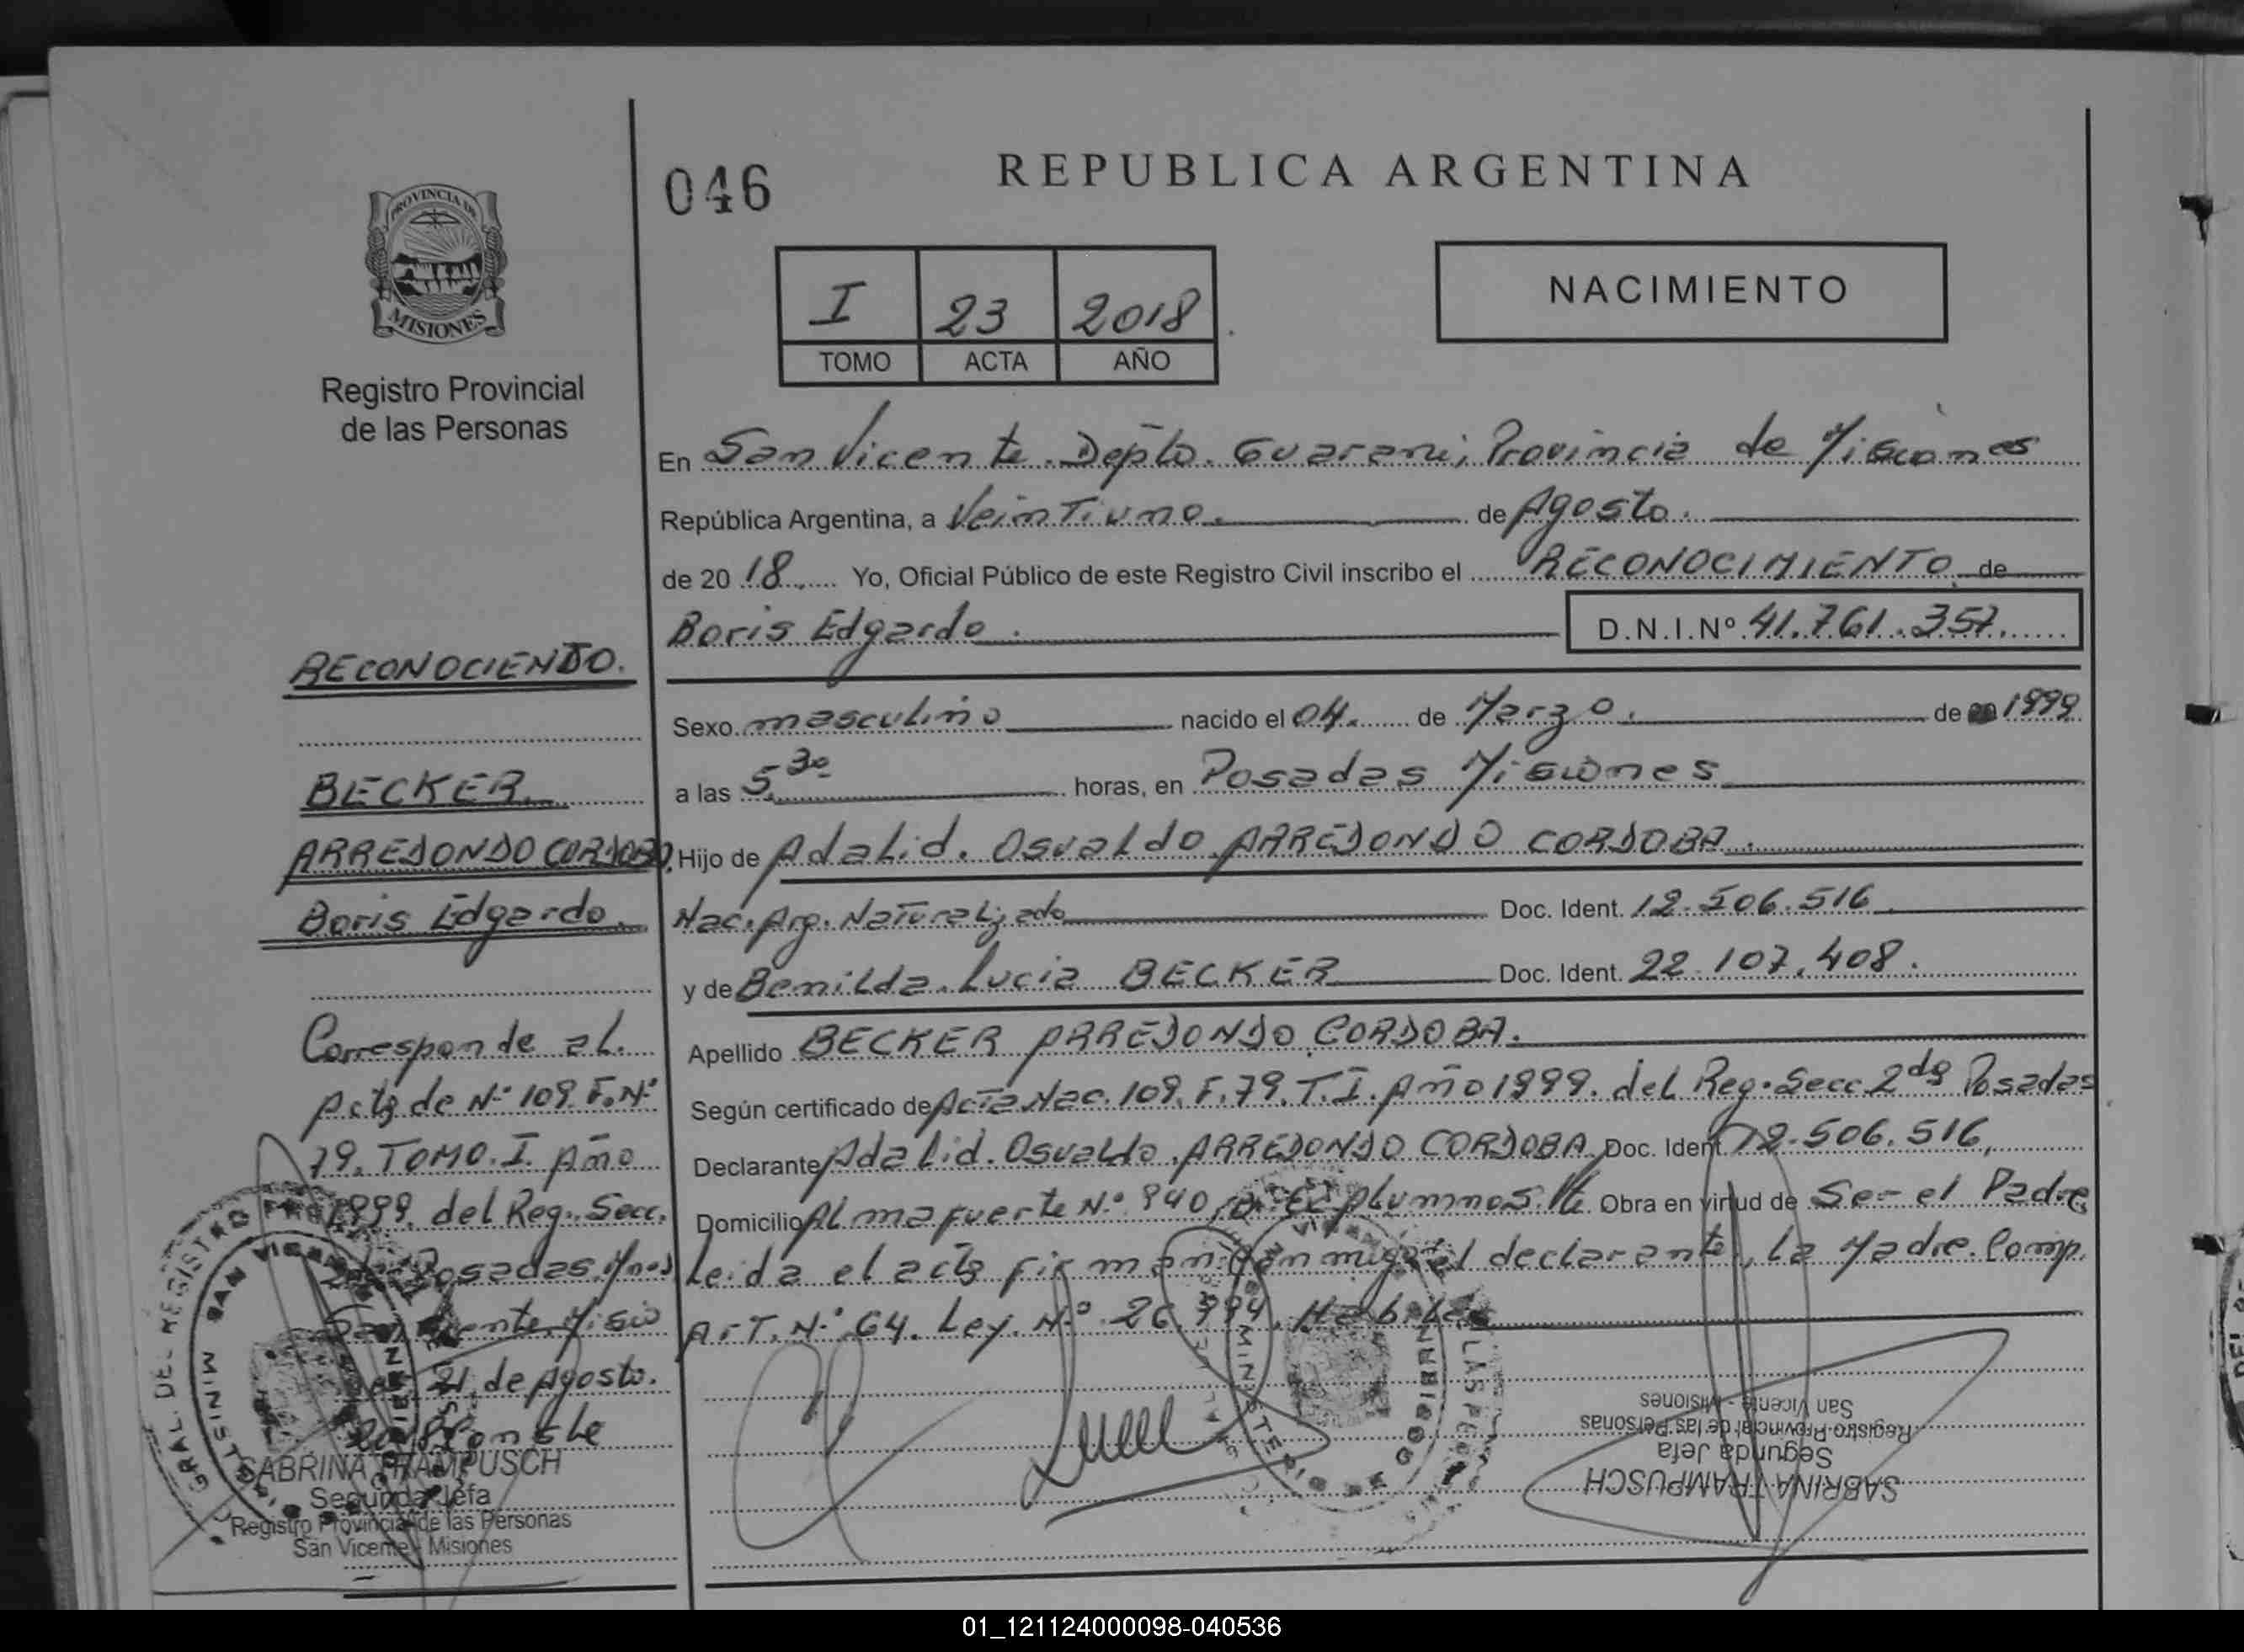 046
REPUBLICA ARGENTINA
PROVINCIA DE
MISIONES
Registro Provincial
de las Personas
I 23 2018
TOMO ACTA AÑO
NACIMIENTO
En San Vicente. Depto. Guarani, Provincia de Misiones
República Argentina, a Veintiuno. de Agosto.
de 20 18 Yo, Oficial Público de este Registro Civil inscribo el RECONOCIMIENTO de
Boris Edgardo. D.N.I.Nº 41.761.357.
Sexo masculino nacido el 04. de Marzo. de 1999
a las 5 30 horas, en Posadas Misiones
Hijo de Adalid. Osvaldo ARREDONDO CORDOBA.
Nac. Arg. Naturalizado Doc. Ident. 12.506.516
y de Benilda. Lucia BECKER Doc. Ident. 22.107.408.
Apellido BECKER ARREDONDO CORDOBA.
Según certificado de Acta Nac. 109. F. 79. T. I. Año 1999. del Reg. Secc 2da Posadas
Declarante Adalid. Osvaldo ARREDONDO CORDOBA Doc. Ident 12.506.516,
Domicilio Almafuerte Nº 940 Obra en virtud de Ser el Padre
Leida el acta firman con migo el declarante, la Madre. Comp.
Art. Nº 64. Ley. Nº 26.994.
RECONOCIENDO.
BECKER
ARREDONDO CORDOBA,
Boris Edgardo.
Corresponde al.
Acta de Nº 109. F. Nº
79. TOMO. I. Año
1999. del Reg. Secc.
Posadas Mnes
21 de Agosto.
SABRINA TRAMPUSCH
Segunda Jefa
Registro Provincial de las Personas
San Vicente - Misiones
SABRINA TRAMPUSCH
Segunda Jefa
Registro Provincial de las Personas
San Vicente - Misiones
01_121124000098-040536